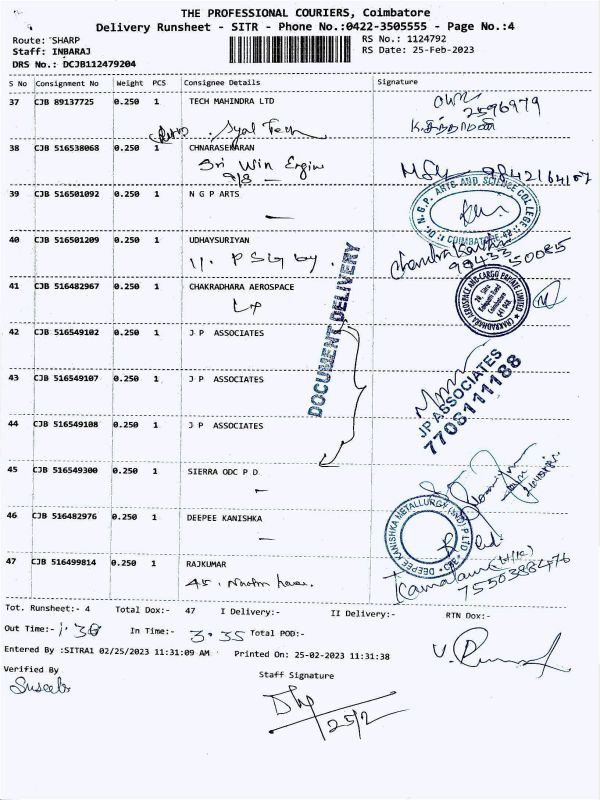 THE PROFESSIONAL COURIERS, Coimbatore
Delivery Runsheet - SITR - Phone No.:0422-3505555 - Page No.:4
Route: "SHARP
RS No.: 1124792
Staff: INBARAJ
RS Date: 25-Feb-2023
DRS No.: DCJB112479204
S No Consignment No Weight PCS Consignee Details Signature
37 CJB 89137725 0.250 1 TECH MAHINDRA LTD
2596979
38 CJB 516538068 0.250 1 CHNARASEKARAN
Sri Win Engine
39 CJB 516501092 0.250 1 N G P ARTS
DR. N.G.P. ARTS AND SCIENCE COLLEGE
COIMBATORE
40 CJB 516501209 0.250 1 UDHAYSURIYAN
41 CJB 516482967 0.250 1 CHAKRADHARA AEROSPACE
CHAKRADHARA AEROSPACE AND CARGO PRIVATE LIMITED
DOCUMENT DELIVERY
42 CJB 516549102 0.250 1 J P ASSOCIATES
43 CJB 516549107 0.250 1 J P ASSOCIATES
JP ASSOCIATES
7708111188
44 CJB 516549108 0.250 1 J P ASSOCIATES
45 CJB 516549300 0.250 1 SIERRA ODC P D.
46 CJB 516482976 0.250 1 DEEPEE KANISHKA
DEEPEE KANISHKA METALLURGY (IND) P LTD
47 CJB 516499814 0.250 1 RAJKUMAR
7550388476
Tot. Runsheet:- 4 Total Dox:- 47 I Delivery:- II Delivery:- RTN Dox:-
Out Time:- 1.30 In Time:- 3.35 Total POD:-
Entered By :SITRA1 02/25/2023 11:31:09 AM Printed On: 25-02-2023 11:31:38
Verified By
Staff Signature
25/2